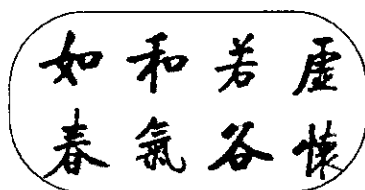 虛懷
若谷
和氣
如春